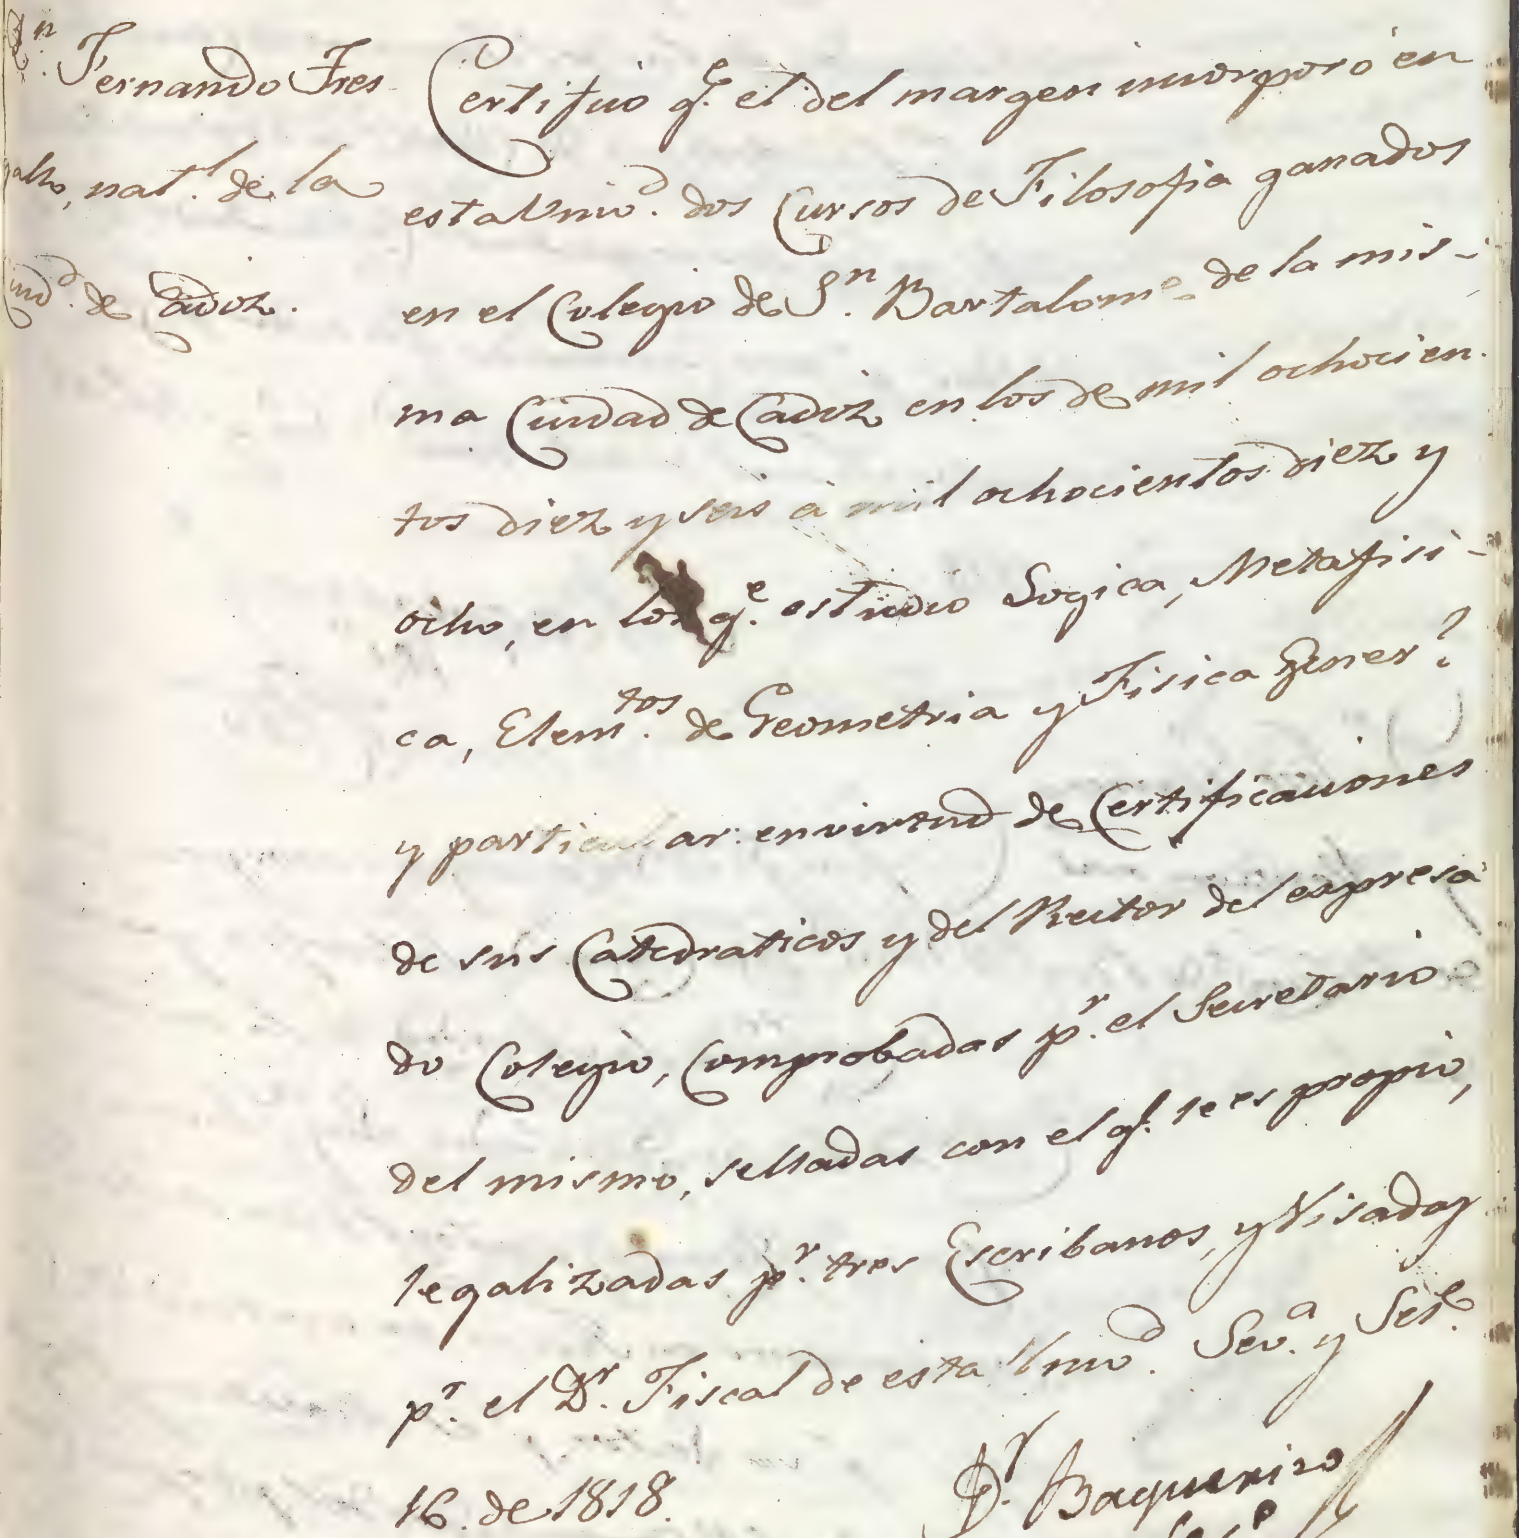 Dn. Fernando Fres-
galto, natl. de la
Ciud. de Cadiz.
Certifico qe. el del margen incorporó en
esta Univd. dos Cursos de Filosofia ganados
en el Colegio de Sn. Bartalome. de la mis-
ma Ciudad de Cadiz en los de mil ochocien-
tos diez y seis á mil ochocientos diez y
ocho, en los qe. estudió Logica, Metafisi-
ca, Elemtos. de Geometria y Fisica Generl.
y particular: en virtud de Certificaciones
de sus Catedraticos y del Rector del expresa-
do Colegio, Comprobadas pr. el Secretario
del mismo, selladas con el qe. le es propio,
legalizadas pr. tres Escribanos, y Visadas
pr. el Dr. Fiscal de esta Univd. Seva. y Sete.
16. de 1818.
Dr. Baquerizo